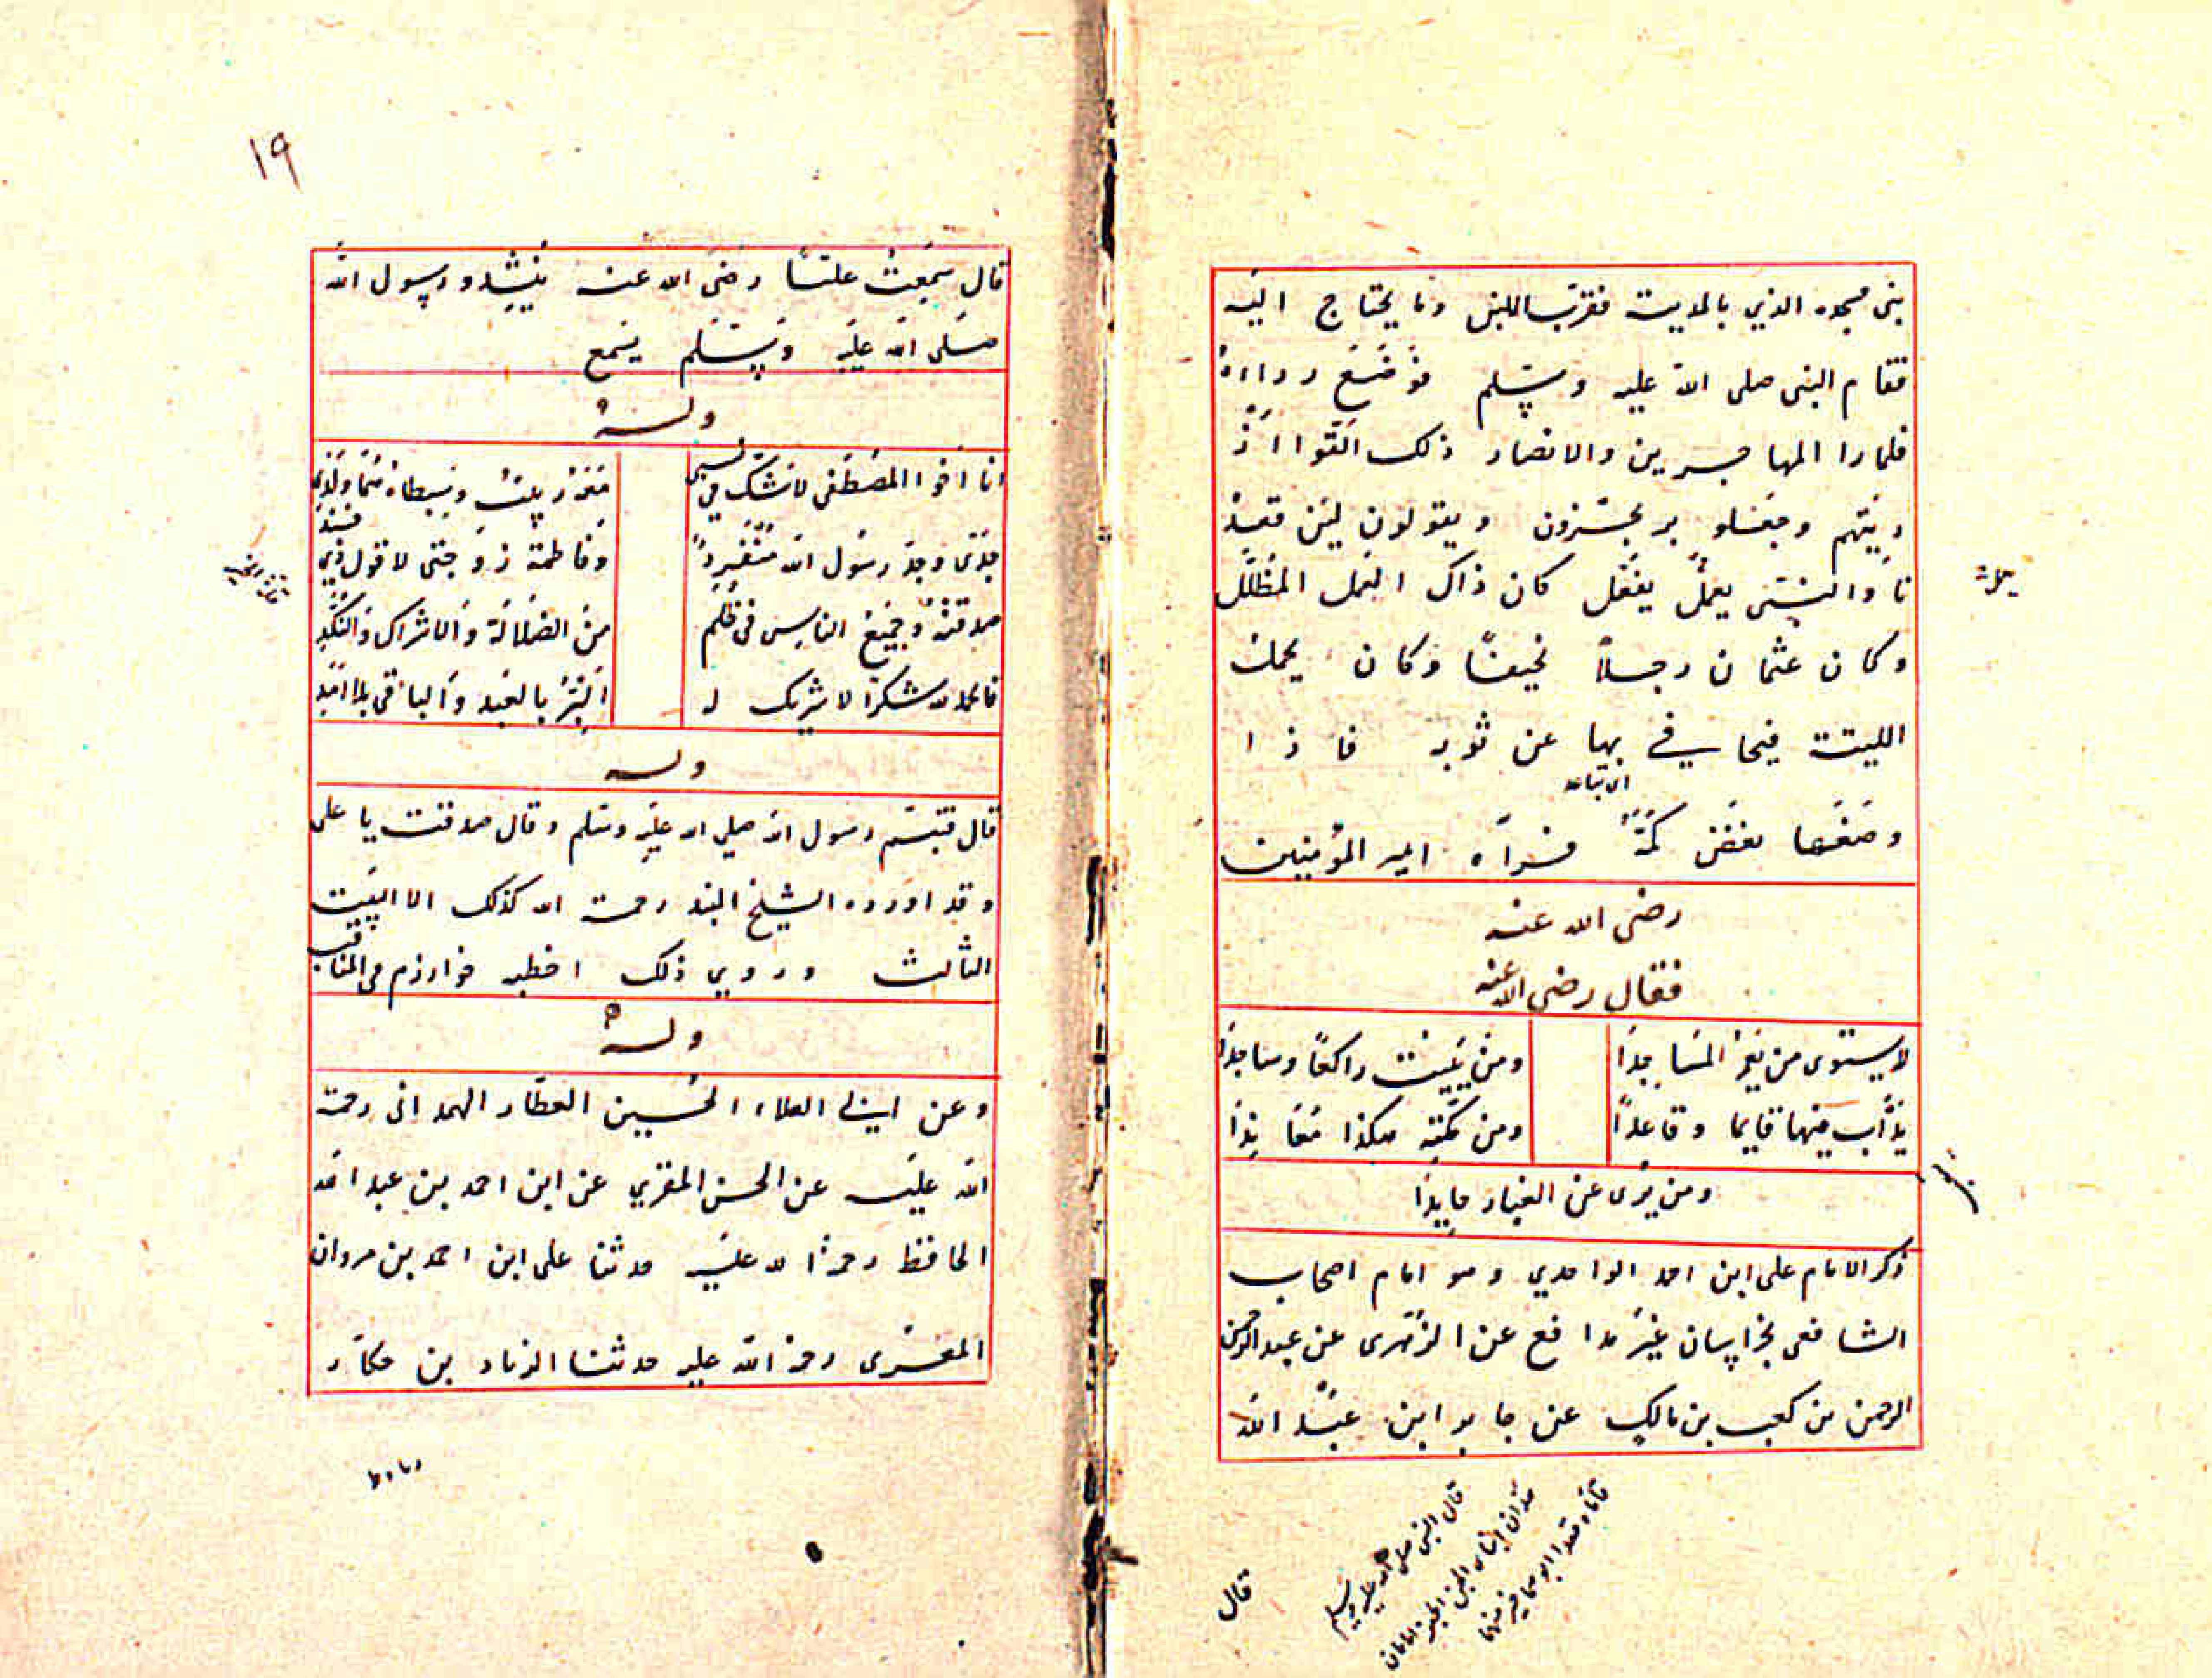 بنى مسجده الذي بالمدينة فقرب اللبن وما يحتاج اليه
فقام النبى صلى الله عليه وسلم فوضع رداءه
فلما را المهاجرين والانصار ذلك القوا اذ
ديتهم وجعلو يرتجزون ويقولون لين قعد
نا والنبى يعمل يغفل كان ذاك العمل المظلل
وكان عثمان رجلا نحيفا وكان يحمل
اللبنة فيجافي بها عن ثوبه فاذا
وضعها نفض كمه فراه امير المؤمنين
رضى الله عنه
فقال رضى الله عنه
لا يستوى من يعمر المساجدا ومن يبيت راكعا وساجدا
يدأب فيها قايما وقاعدا ومن هكذا معاندا
ومن يرى عن الغبار حايدا
ذكر الامام على ابن احمد الواحدي وهو امام اصحاب
الشافعى بخراسان غير مدافع عن الزهرى عن عبد الرحمن
الرحمن بن كعب بن مالك عن جابر ابن عبد الله
قال النبى صلى الله عليه وسلم
قال
١٩
قال سمعت عليا رضى الله عنه ينشد ورسول الله
صلى الله عليه وسلم يسمع
وله
انا اخو المصطفى لا شك في نسبى معه ربيت وسبطاه هما ولدي
جدى وجد رسول الله منفرد وفاطمة زوجتى لا قول ذي فند
صدقته وجميع الناس في ظلم من الضلالة والاشراك والنكد
فالحمد لله شكرا لا شريك له البر بالعبد والباقى بلا امد
وله
قال فتبسم رسول الله صلى الله عليه وسلم وقال صدقت يا على
وقد اورده الشيخ رحمة الله كذلك الا البيت
الثالث وروي ذلك اخطب خوارزم فى المناقب
وله
وعن ابي العلاء الحسين العطار الهمدانى رحمة
الله عليه عن الحسن المقري عن ابن احمد بن عبد الله
الحافظ رحمة الله عليه حدثنا على ابن احمد بن مروان
المقرى رحمة الله عليه حدثنا الزناد بن حكار